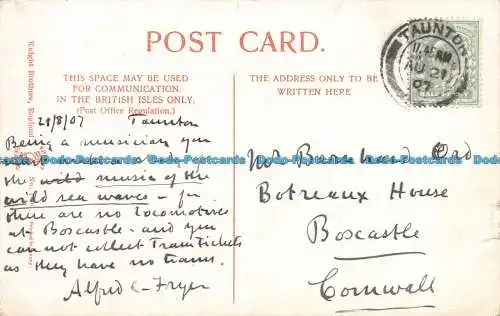 POST CARD.
THIS SPACE MAY BE USED
FOR COMMUNICATION.
IN THE BRITISH ISLES ONLY.
(Post Office Regulation.)
THE ADDRESS ONLY TO BE
WRITTEN HERE
Knight Brothers, England
TAUNTON
11.45 AM
AU 21
07
21/8/07 Taunton
Being a musician you
must
the wild music of the
wild sea waves - for
there are no locomotives
at Boscastle - and you
can not collect Tramtickets
as they have no trams.
Alfred C Fryer
Mr Bernhard Ord
Botreaux House
Boscastle
Cornwall
Dodo-Postcards Dodo-Postcards Dodo-Postcards Dodo-Postcards